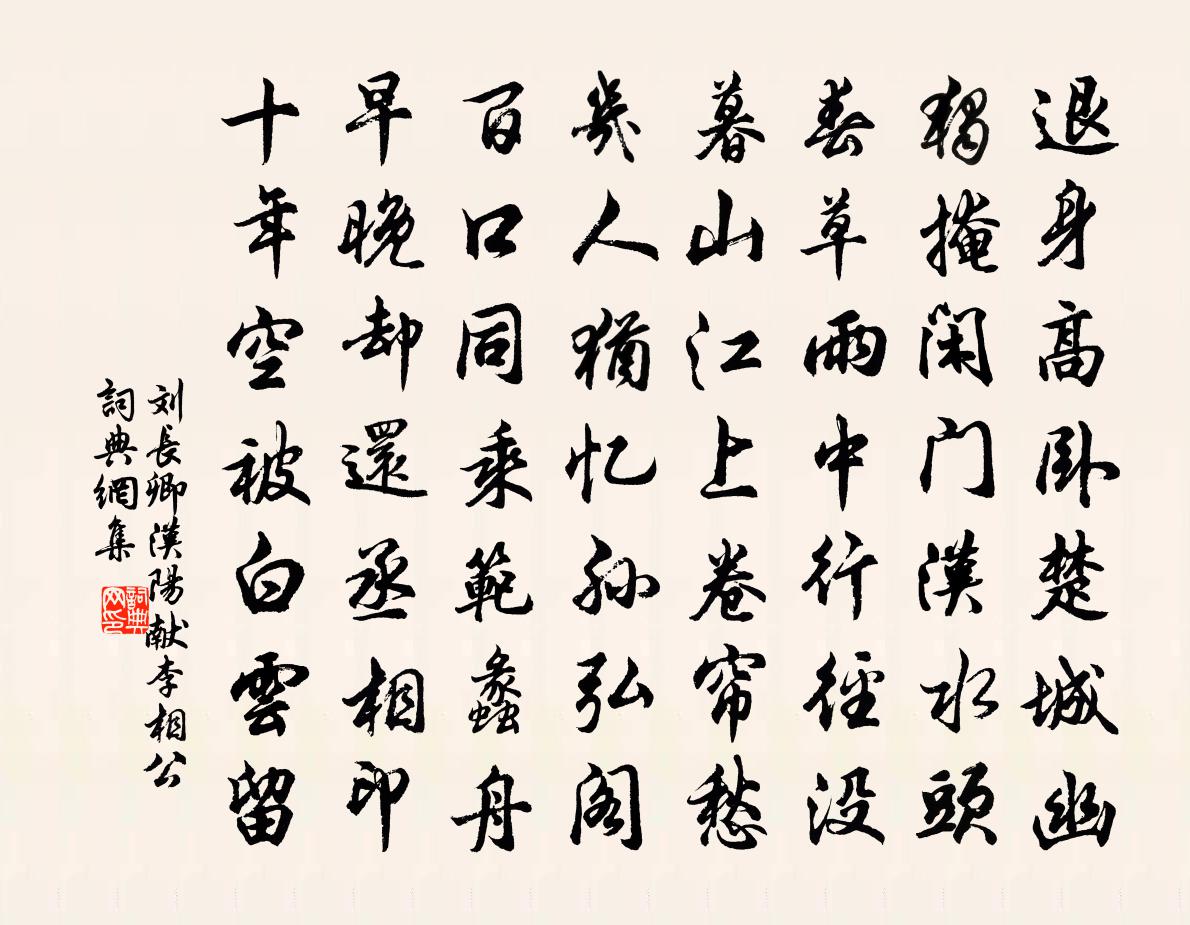 退身高卧楚城幽
獨掩闲门漢水頭
春草雨中行徑没
暮山江上卷帘愁
幾人猶忆孙弘阁
百口同乘範蠡舟
早晚却還丞相印
十年空被白雲留
刘長卿漢陽献李相公
詞典網集
詞典网印